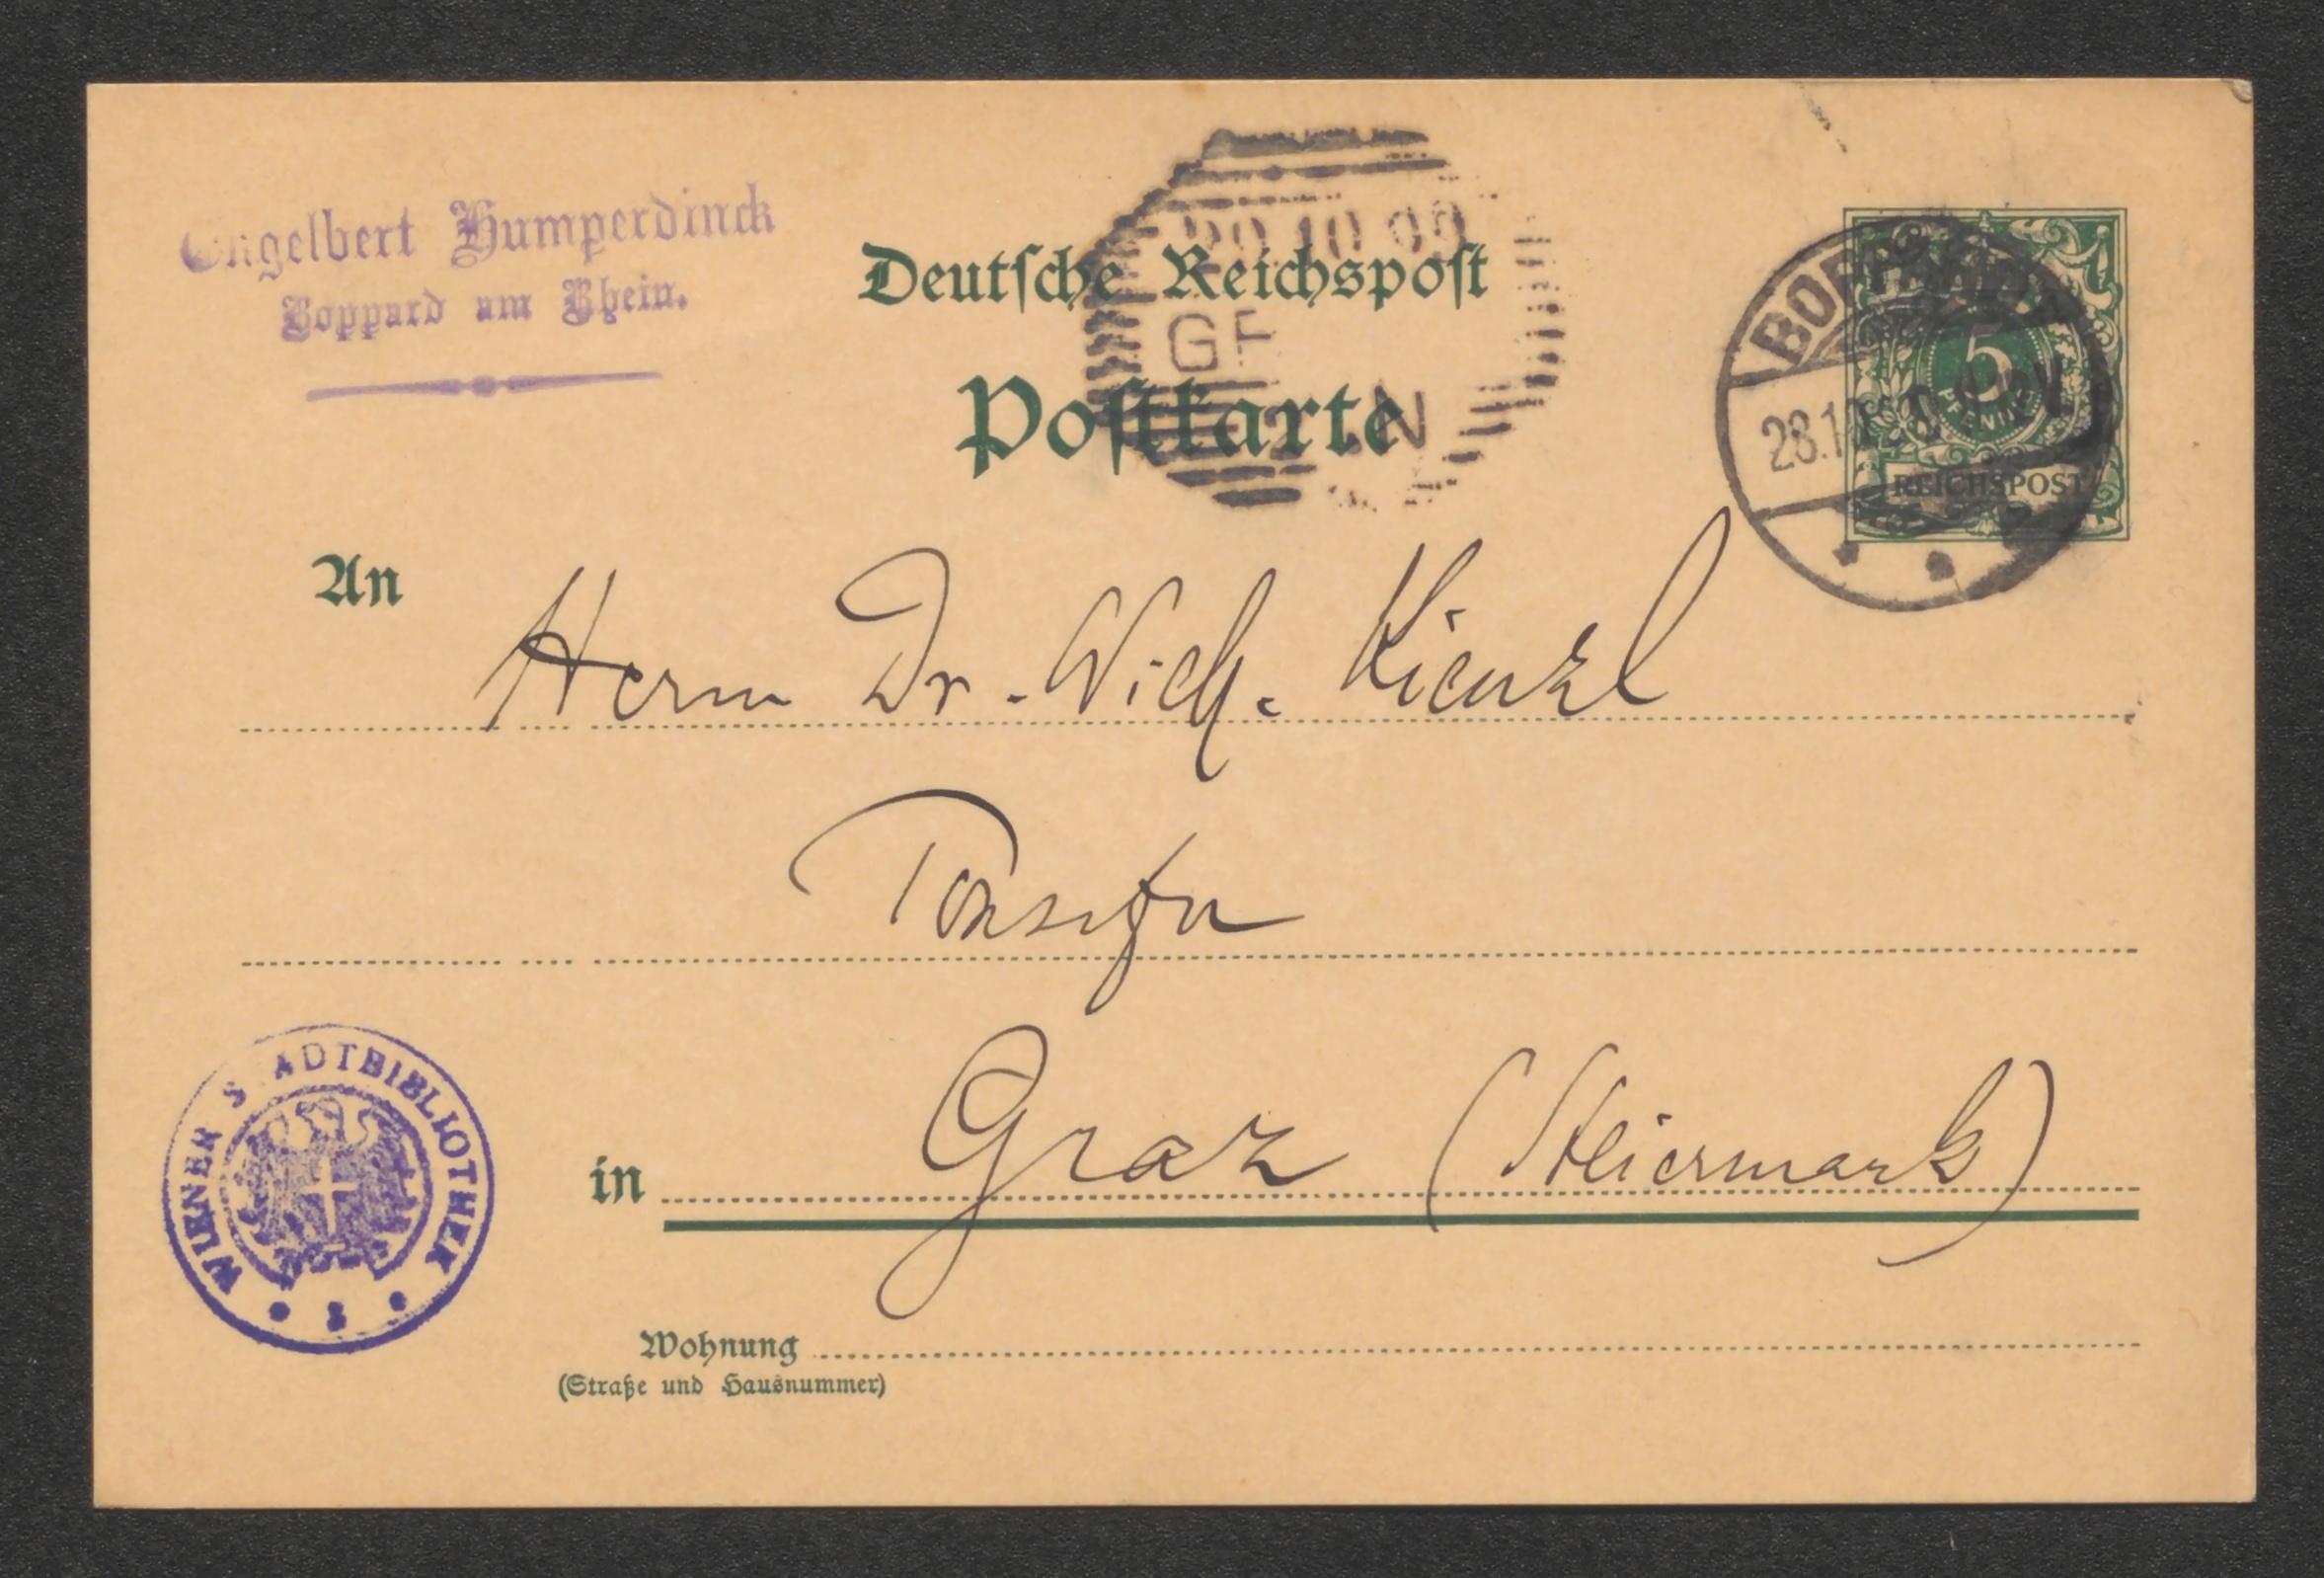 Engelbert Humperdinck
Boppard am Rhein.
Deutsche Reichspost
Postkarte
BOPPARD
5
PFENNIG
REICHSPOST
GF
N
An
Herrn Dr. Wilh. Kienzl
Tonsetzer
in Graz (Steiermark)
WIENER STADTBIBLIOTHEK
Wohnung
(Straße und Hausnummer)